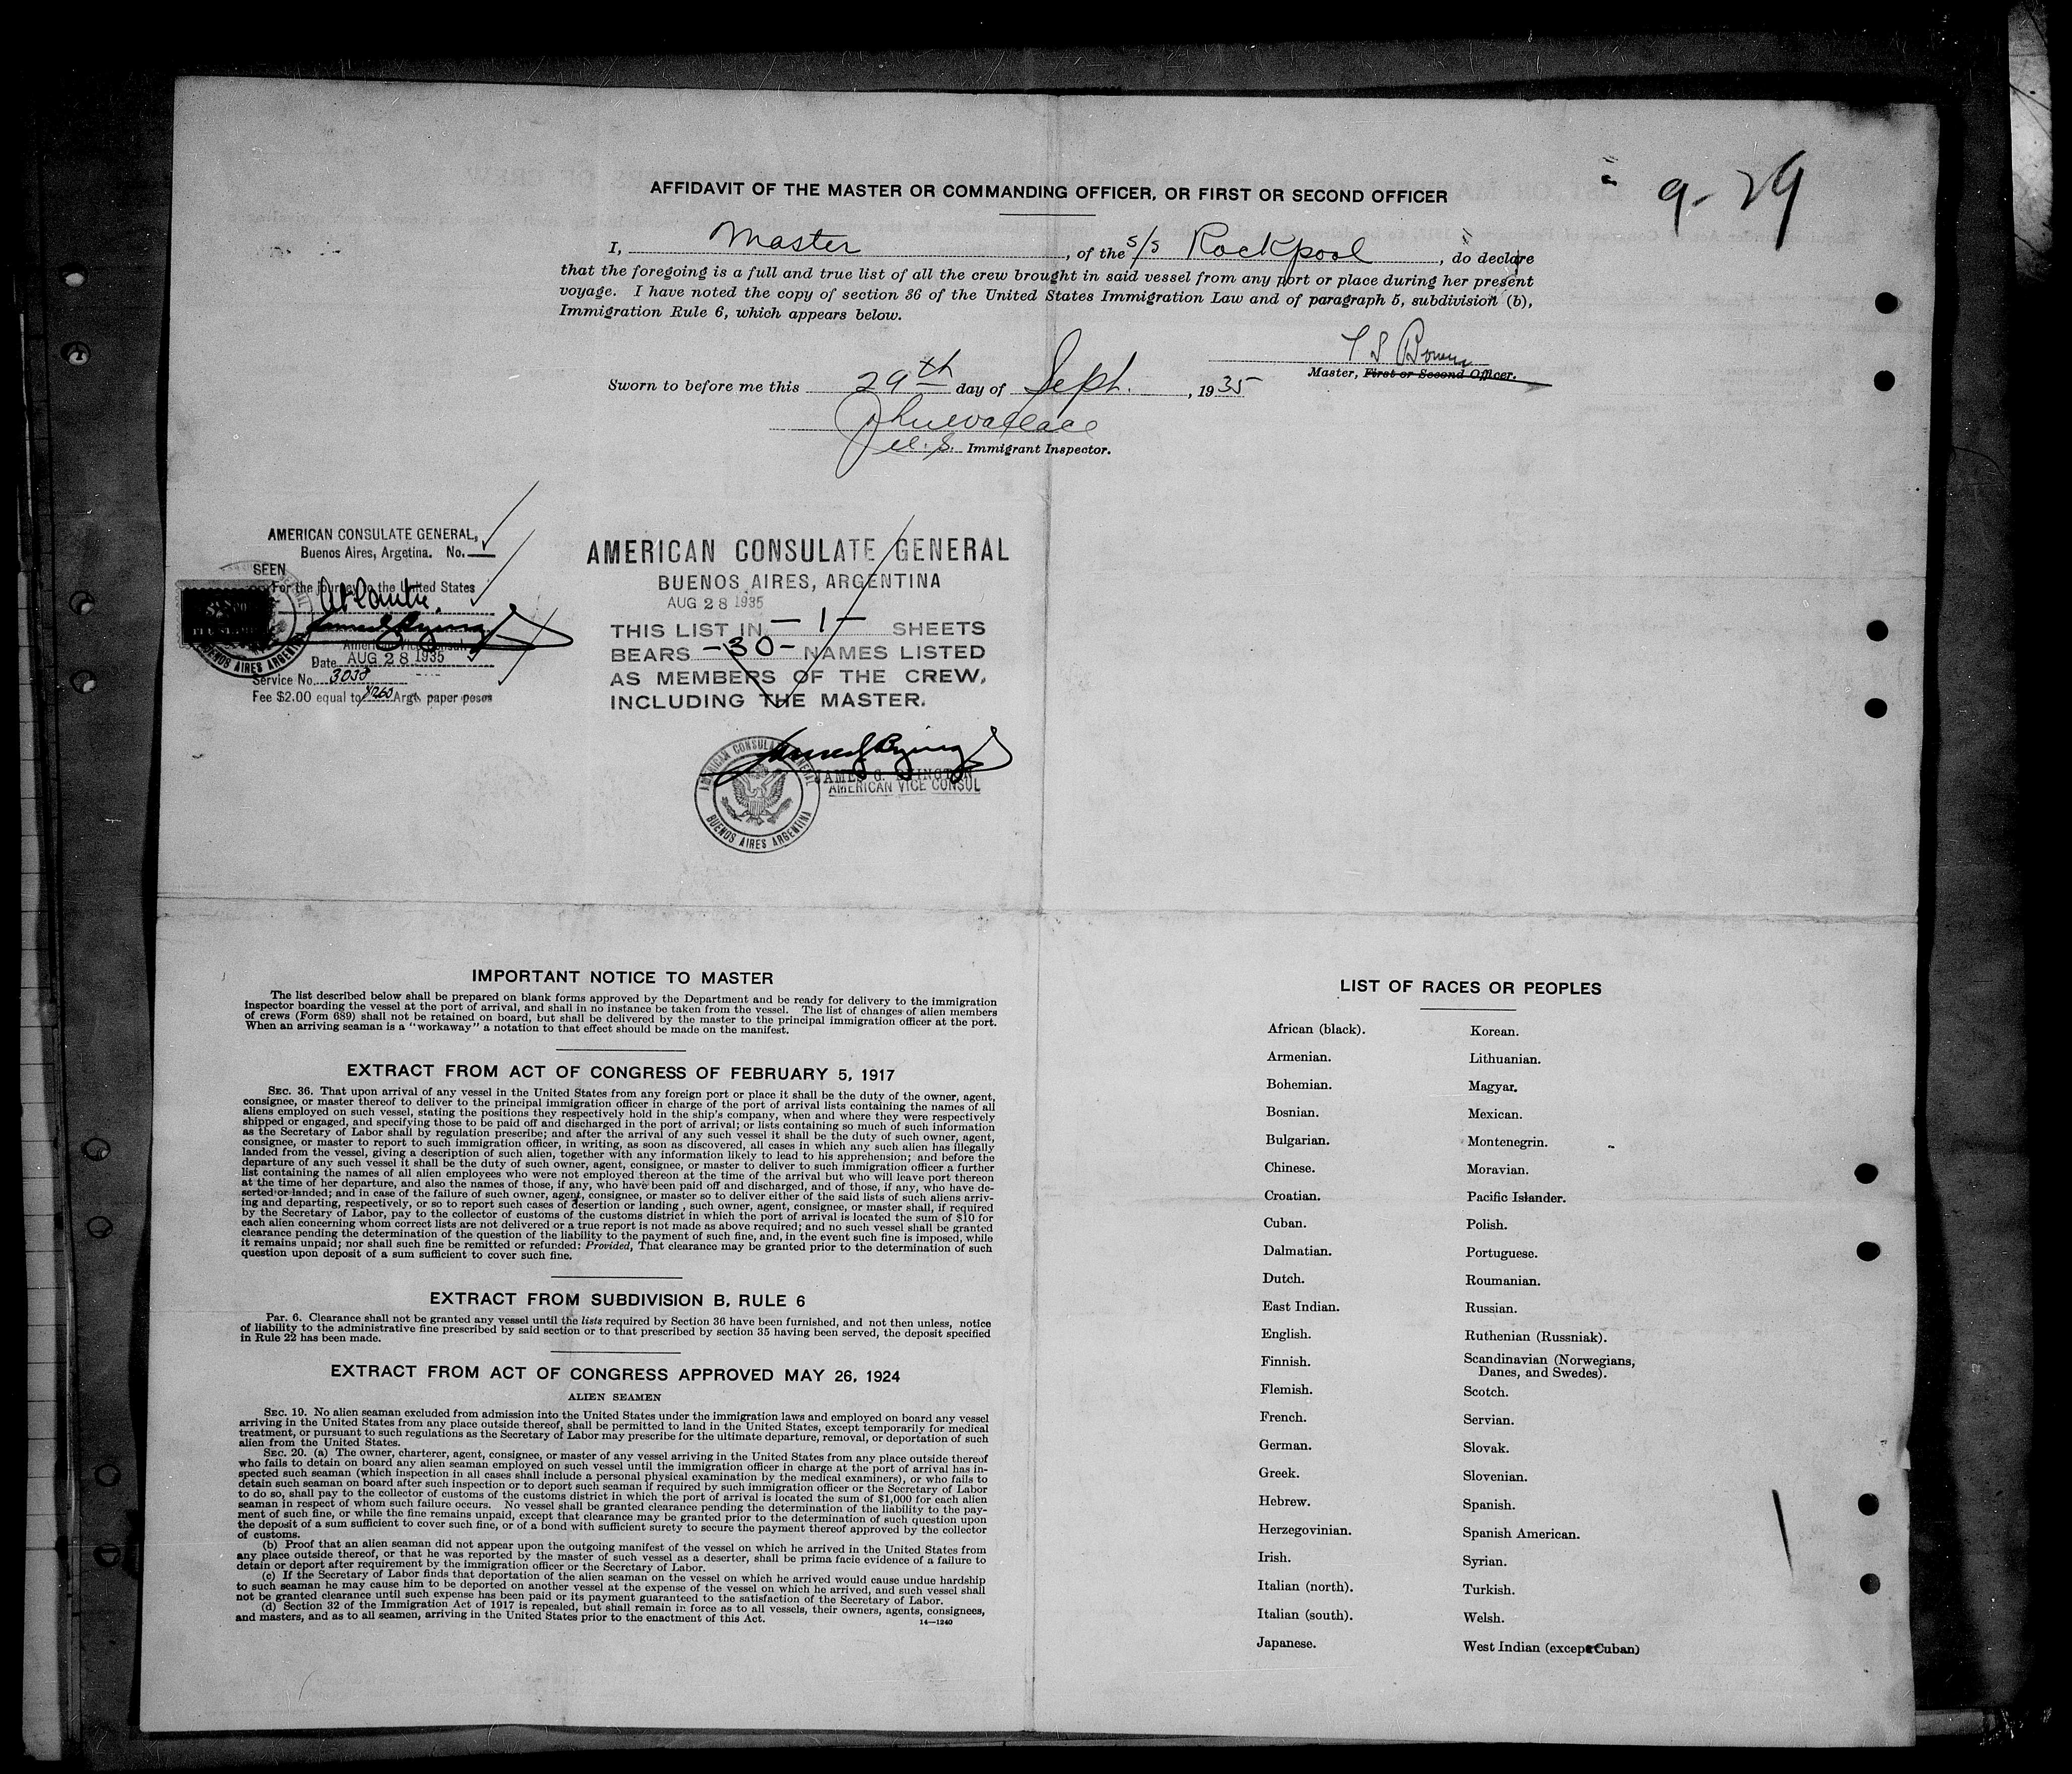 9-29
AFFIDAVIT OF THE MASTER OR COMMANDING OFFICER, OR FIRST OR SECOND OFFICER
I, Master, of the s/s Rockpool, do declare
that the foregoing is a full and true list of all the crew brought in said vessel from any port or place during her present
voyage. I have noted the copy of section 36 of the United States Immigration Law and of paragraph 5, subdivision (b),
Immigration Rule 6, which appears below.
Master, First or Second Officer.
Sworn to before me this 29th day of Sept., 1935
U.S. Immigrant Inspector.
AMERICAN CONSULATE GENERAL,
Buenos Aires, Argetina. No.
SEEN
For the journey to the United States
Atlantic.
American Vice Consul
Date AUG 28 1935
Service No. 3038
Fee $2.00 equal to Argt. paper pesos
BUENOS AIRES ARGENTINA
AMERICAN CONSULATE GENERAL
BUENOS AIRES, ARGENTINA
AUG 28 1935
THIS LIST IN -1- SHEETS
BEARS -30- NAMES LISTED
AS MEMBERS OF THE CREW,
INCLUDING THE MASTER.
JAMES G. BYINGTON
AMERICAN VICE CONSUL
AMERICAN CONSULATE GENERAL
BUENOS AIRES ARGENTINA
IMPORTANT NOTICE TO MASTER
The list described below shall be prepared on blank forms approved by the Department and be ready for delivery to the immigration
inspector boarding the vessel at the port of arrival, and shall in no instance be taken from the vessel. The list of changes of alien members
of crews (Form 689) shall not be retained on board, but shall be delivered by the master to the principal immigration officer at the port.
When an arriving seaman is a "workaway" a notation to that effect should be made on the manifest.
EXTRACT FROM ACT OF CONGRESS OF FEBRUARY 5, 1917
SEC. 36. That upon arrival of any vessel in the United States from any foreign port or place it shall be the duty of the owner, agent,
consignee, or master thereof to deliver to the principal immigration officer in charge of the port of arrival lists containing the names of all
aliens employed on such vessel, stating the positions they respectively hold in the ship's company, when and where they were respectively
shipped or engaged, and specifying those to be paid off and discharged in the port of arrival; or lists containing so much of such information
as the Secretary of Labor shall by regulation prescribe; and after the arrival of any such vessel it shall be the duty of such owner, agent,
consignee, or master to report to such immigration officer, in writing, as soon as discovered, all cases in which any such alien has illegally
landed from the vessel, giving a description of such alien, together with any information likely to lead to his apprehension; and before the
departure of any such vessel it shall be the duty of such owner, agent, consignee, or master to deliver to such immigration officer a further
list containing the names of all alien employees who were not employed thereon at the time of the arrival but who will leave port thereon
at the time of her departure, and also the names of those, if any, who have been paid off and discharged, and of those, if any, who have de-
serted or landed; and in case of the failure of such owner, agent, consignee, or master so to deliver either of the said lists of such aliens arriv-
ing and departing, respectively, or so to report such cases of desertion or landing , such owner, agent, consignee, or master shall, if required
by the Secretary of Labor, pay to the collector of customs of the customs district in which the port of arrival is located the sum of $10 for
each alien concerning whom correct lists are not delivered or a true report is not made as above required; and no such vessel shall be granted
clearance pending the determination of the question of the liability to the payment of such fine, and, in the event such fine is imposed, while
it remains unpaid; nor shall such fine be remitted or refunded: Provided, That clearance may be granted prior to the determination of such
question upon deposit of a sum sufficient to cover such fine.
EXTRACT FROM SUBDIVISION B, RULE 6
Par. 6. Clearance shall not be granted any vessel until the lists required by Section 36 have been furnished, and not then unless, notice
of liability to the administrative fine prescribed by said section or to that prescribed by section 35 having been served, the deposit specified
in Rule 22 has been made.
EXTRACT FROM ACT OF CONGRESS APPROVED MAY 26, 1924
ALIEN SEAMEN
SEC. 19. No alien seaman excluded from admission into the United States under the immigration laws and employed on board any vessel
arriving in the United States from any place outside thereof, shall be permitted to land in the United States, except temporarily for medical
treatment, or pursuant to such regulations as the Secretary of Labor may prescribe for the ultimate departure, removal, or deportation of such
alien from the United States.
SEC. 20. (a) The owner, charterer, agent, consignee, or master of any vessel arriving in the United States from any place outside thereof
who fails to detain on board any alien seaman employed on such vessel until the immigration officer in charge at the port of arrival has in-
spected such seaman (which inspection in all cases shall include a personal physical examination by the medical examiners), or who fails to
detain such seaman on board after such inspection or to deport such seaman if required by such immigration officer or the Secretary of Labor
to do so, shall pay to the collector of customs of the customs district in which the port of arrival is located the sum of $1,000 for each alien
seaman in respect of whom such failure occurs. No vessel shall be granted clearance pending the determination of the liability to the pay-
ment of such fine, or while the fine remains unpaid, except that clearance may be granted prior to the determination of such question upon
the deposit of a sum sufficient to cover such fine, or of a bond with sufficient surety to secure the payment thereof approved by the collector
of customs.
(b) Proof that an alien seaman did not appear upon the outgoing manifest of the vessel on which he arrived in the United States from
any place outside thereof, or that he was reported by the master of such vessel as a deserter, shall be prima facie evidence of a failure to
detain or deport after requirement by the immigration officer or the Secretary of Labor.
(c) If the Secretary of Labor finds that deportation of the alien seaman on the vessel on which he arrived would cause undue hardship
to such seaman he may cause him to be deported on another vessel at the expense of the vessel on which he arrived, and such vessel shall
not be granted clearance until such expense has been paid or its payment guaranteed to the satisfaction of the Secretary of Labor.
(d) Section 32 of the Immigration Act of 1917 is repealed, but shall remain in force as to all vessels, their owners, agents, consignees,
and masters, and as to all seamen, arriving in the United States prior to the enactment of this Act.
14—1240
LIST OF RACES OR PEOPLES
African (black).
Armenian.
Bohemian.
Bosnian.
Bulgarian.
Chinese.
Croatian.
Cuban.
Dalmatian.
Dutch.
East Indian.
English.
Finnish.
Flemish.
French.
German.
Greek.
Hebrew.
Herzegovinian.
Irish.
Italian (north).
Italian (south).
Japanese.
Korean.
Lithuanian.
Magyar.
Mexican.
Montenegrin.
Moravian.
Pacific Islander.
Polish.
Portuguese.
Roumanian.
Russian.
Ruthenian (Russniak).
Scandinavian (Norwegians,
Danes, and Swedes).
Scotch.
Servian.
Slovak.
Slovenian.
Spanish.
Spanish American.
Syrian.
Turkish.
Welsh.
West Indian (except Cuban)